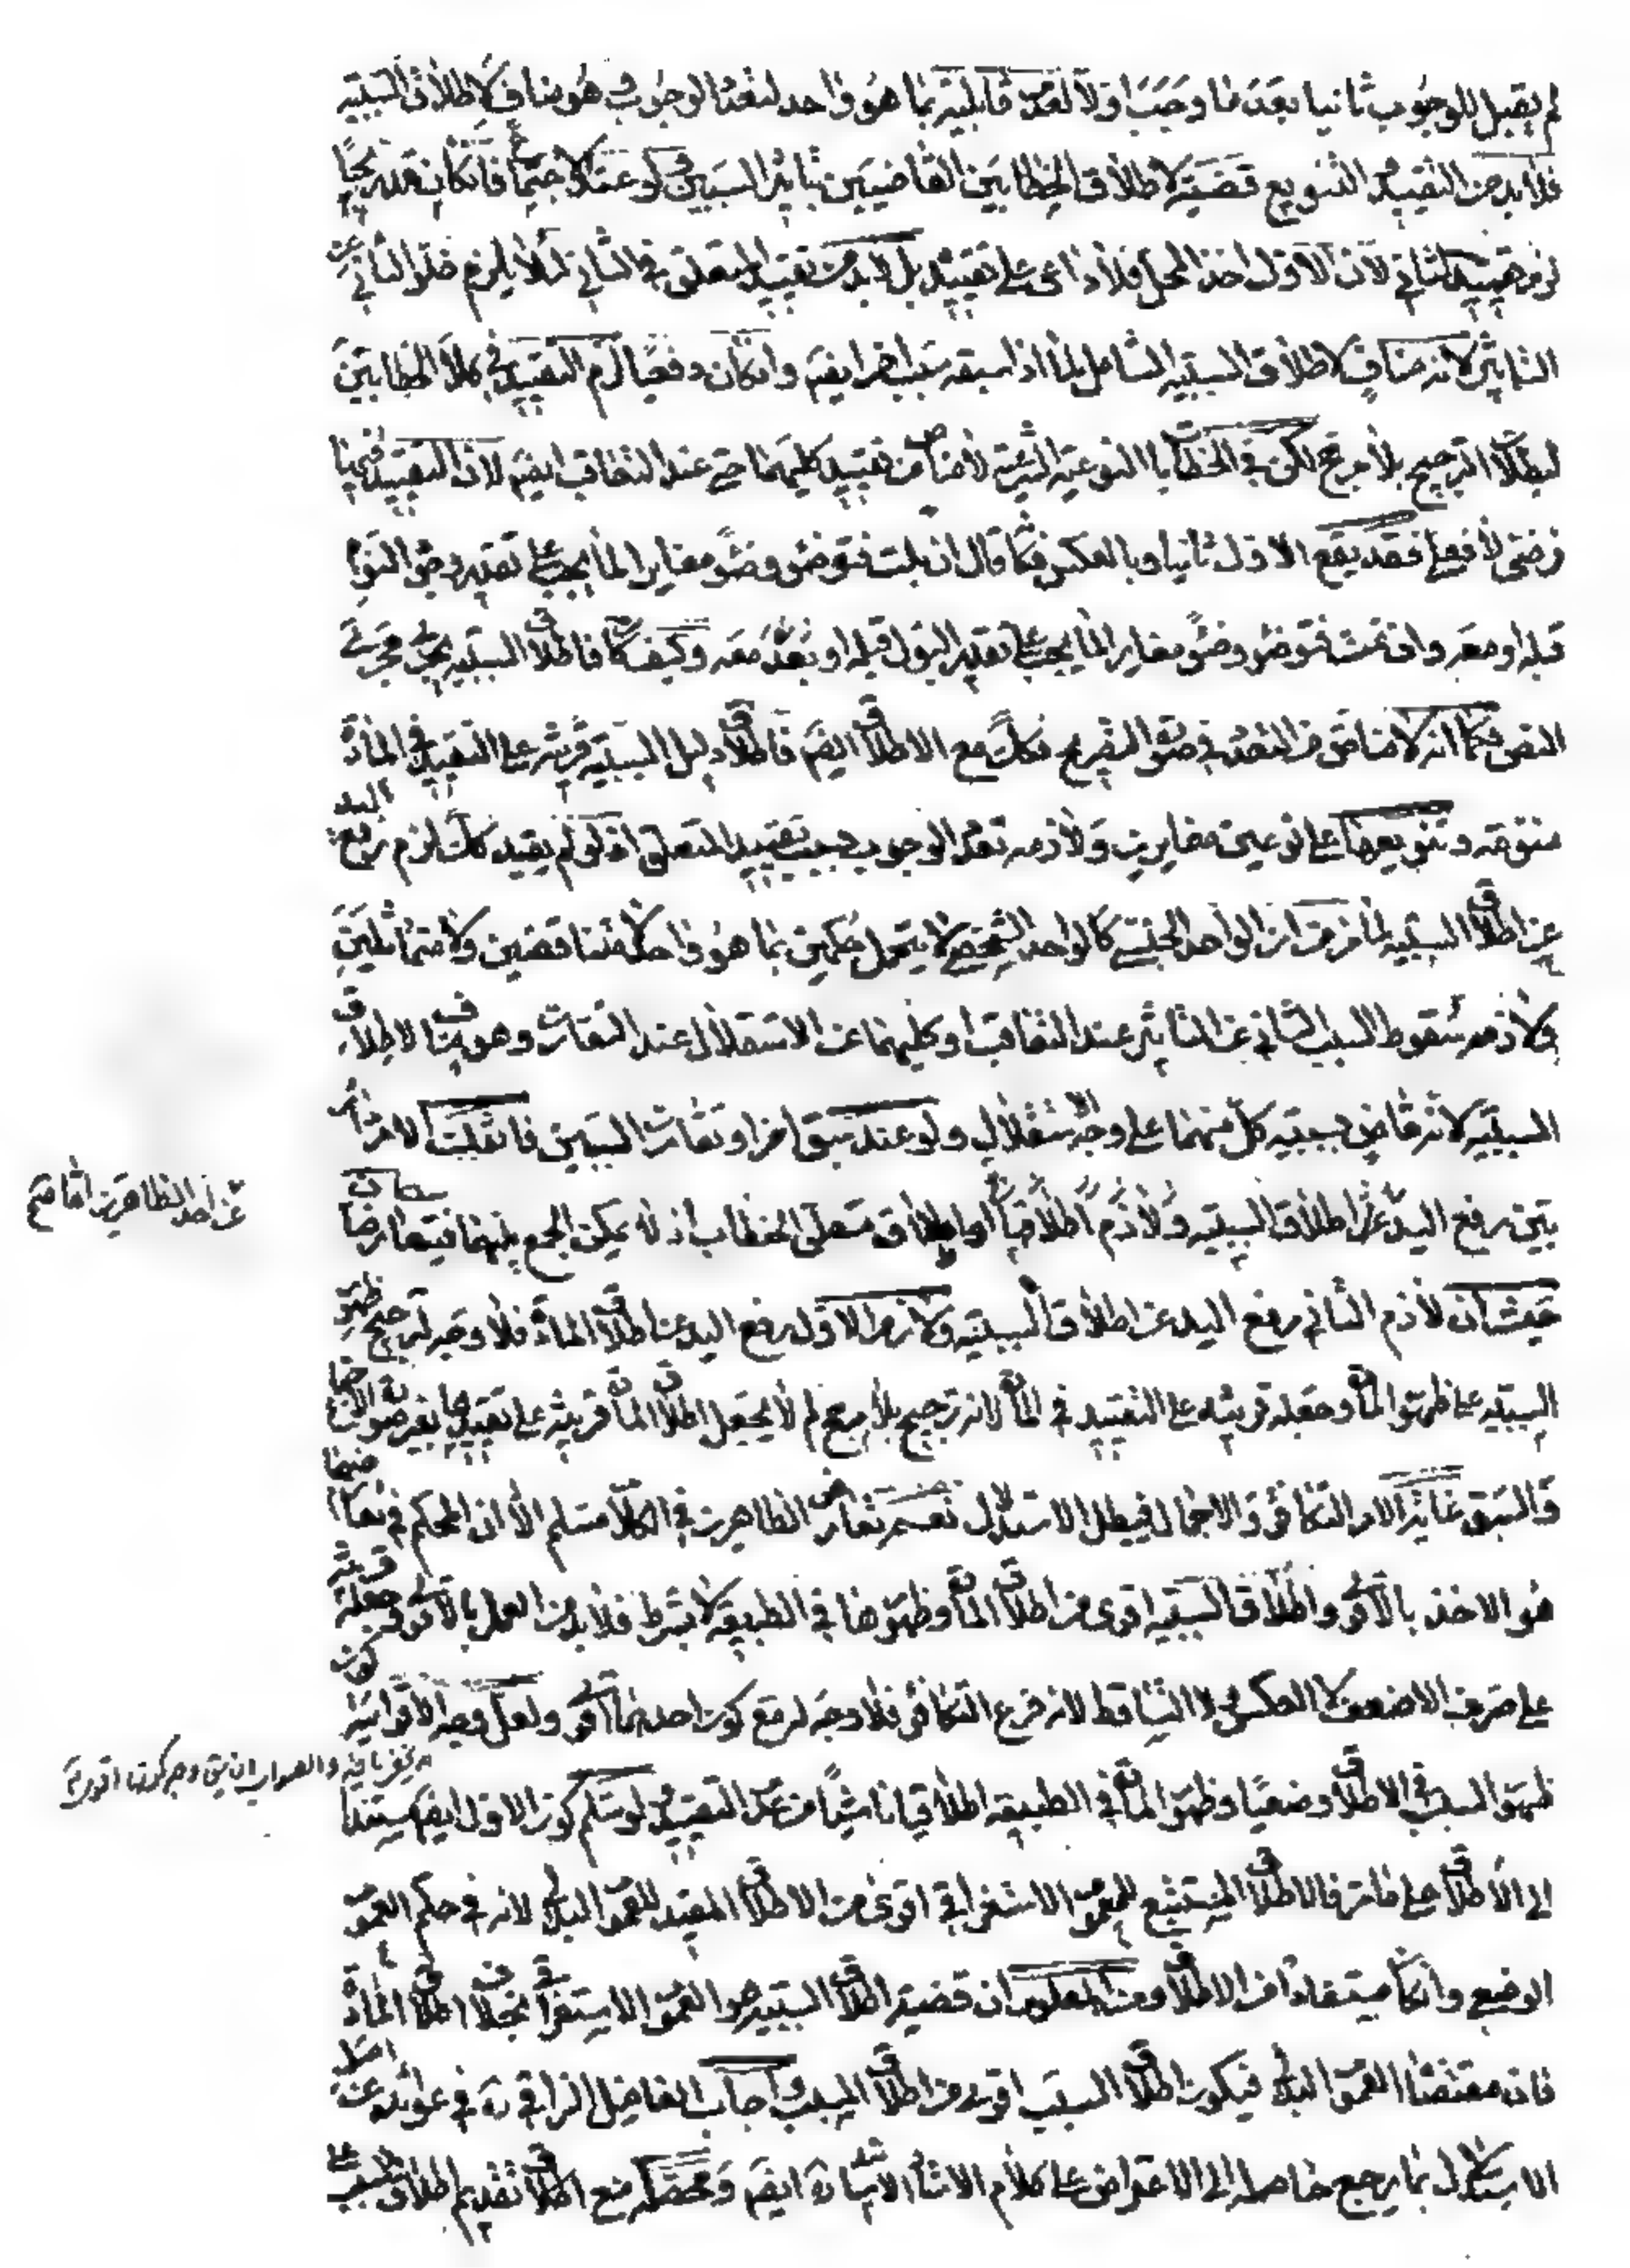 لم يقبل للوجوب ثانيا بعد ما وجب اولا لعدم قابليته بما هو واحد لتعدد الوجوب وهو مناف لاطلاق السببية
فلا بد من التقييد والتنويع قضية لاطلاق الخطابين القاضيين بتاثير السببين ولو عند الاجتماع فان كان تدريجيا
لزم تقييد الثاني لان الاول اخذ المحل فلا داعى على تقييده بل لا بد من تقييد المتعلق في الثاني لئلا يلزم خلو الثاني عن
التاثير لانه مناف لاطلاق السببية الشامل لما اذا سبقه سبب اخر ايضا وان كان دفعيا لزم التقييد في كلا الخطابين
لبطلان الترجيح بلا مرجح لكن في الخطابات النوعية الشرعية لا مناص من تقييد كليهما حتى عند التعاقب ايضا لان التقييد فيها
فرضى لا فعلى فقد يقع الاول ثانيا وبالعكس فكما قال ان بلت فتوضأ وضوء مغايرا لما يجب على تقدير وجود النوم
قبله او معه وان نمت فتوضأ وضوء مغايرا لما يجب على تقدير البول قبله او بعده او معه وكيف كان فاطلاق السببية يجرى مجرى
النص فكما انه لا مناص من التعدد في صورة التصريح فكذلك مع الاطلاق ايضا فاطلاق دليل السببية قرينة على التقييد في المادة
منوعة وتنويعها على نوعين مغايرين ولازمه تعدد الوجوب بحسب تقييد المتعلق اذ لو لم يقيد كذلك لزم رفع اليد
عن اطلاق السببية لما مر من ان الواحد الجنسى كالواحد الشخصى لا يتحمل حكمين بما هو واحد لا متناقضين ولا متماثلين
ولازمه سقوط السبب الثاني عن التاثير عند التعاقب او كليهما عن الاستقلال عند التقارن وهو مناف لاطلاق
السببية لانه قاض بسببية كل منهما على وجه الاستقلال ولو عند سبق اخر او تقارن السببين فان قلت الامر دائر
بين رفع اليد عن اطلاق السببية او اطلاق متعلق الخطاب اذ لا يمكن الجمع بينهما فيتعارضان
عن احد الظاهرين اما
حيث ان لازم الثاني رفع اليد عن اطلاق السببية ولازم الاول رفع اليد عن اطلاق المادة فلا وجه لترجيح ظهور
السببية على ظهور المادة وجعله قرينة على التقييد في المادة لانه ترجيح بلا مرجح لم لا يجعل اطلاق المادة قرينة على تقييدها بغير صورة التقارن
والسبق غاية الامر التكافؤ والاجمال فيبطل الاستدلال قلت نعم تعارض الظاهرين في الكلام مسلم الا ان المحكم في
هو الاخذ بالاقوى واطلاق السببية اقوى من اطلاق المادة وظهورها في الطبيعة لا بشرط فلا بد من العمل بالاقوى وجعله قرينة
على صرف الاضعف لا العكس ولا التساقط لانه فرع التكافؤ فلا وجه له مع كون احدهما اقوى ولعل وجه الاقوائية كون
ظهور السبب في الاطلاق وضعيا وظهور المادة في الطبيعة اطلاقيا ناشئا من عدم التقييد ولو سلم كون الاول ايضا مستندا
والصواب ان يق وجه كونه اقوى
الى الاطلاق على ما مر فالاطلاق المستتبع للعموم الاستغراقي اقوى من الاطلاق المفيد للعموم البدلى لانه في حكم العموم
الوضعى وان كان مستفادا من الاطلاق ومن المعلوم ان قضية اطلاق السببية هو العموم الاستغراقي بخلاف اطلاق المادة
فان مقتضاها العموم البدلى فيكون اطلاق السبب اقوى من اطلاق المسبب واجاب الفاضل النراقي ره في عوائده عن اصل
الاستدلال بما يرجع حاصله الى الاعتراض على كلام الاستاد ره ايضا ومحصله منع اطلاق تقديم اطلاق السبب على